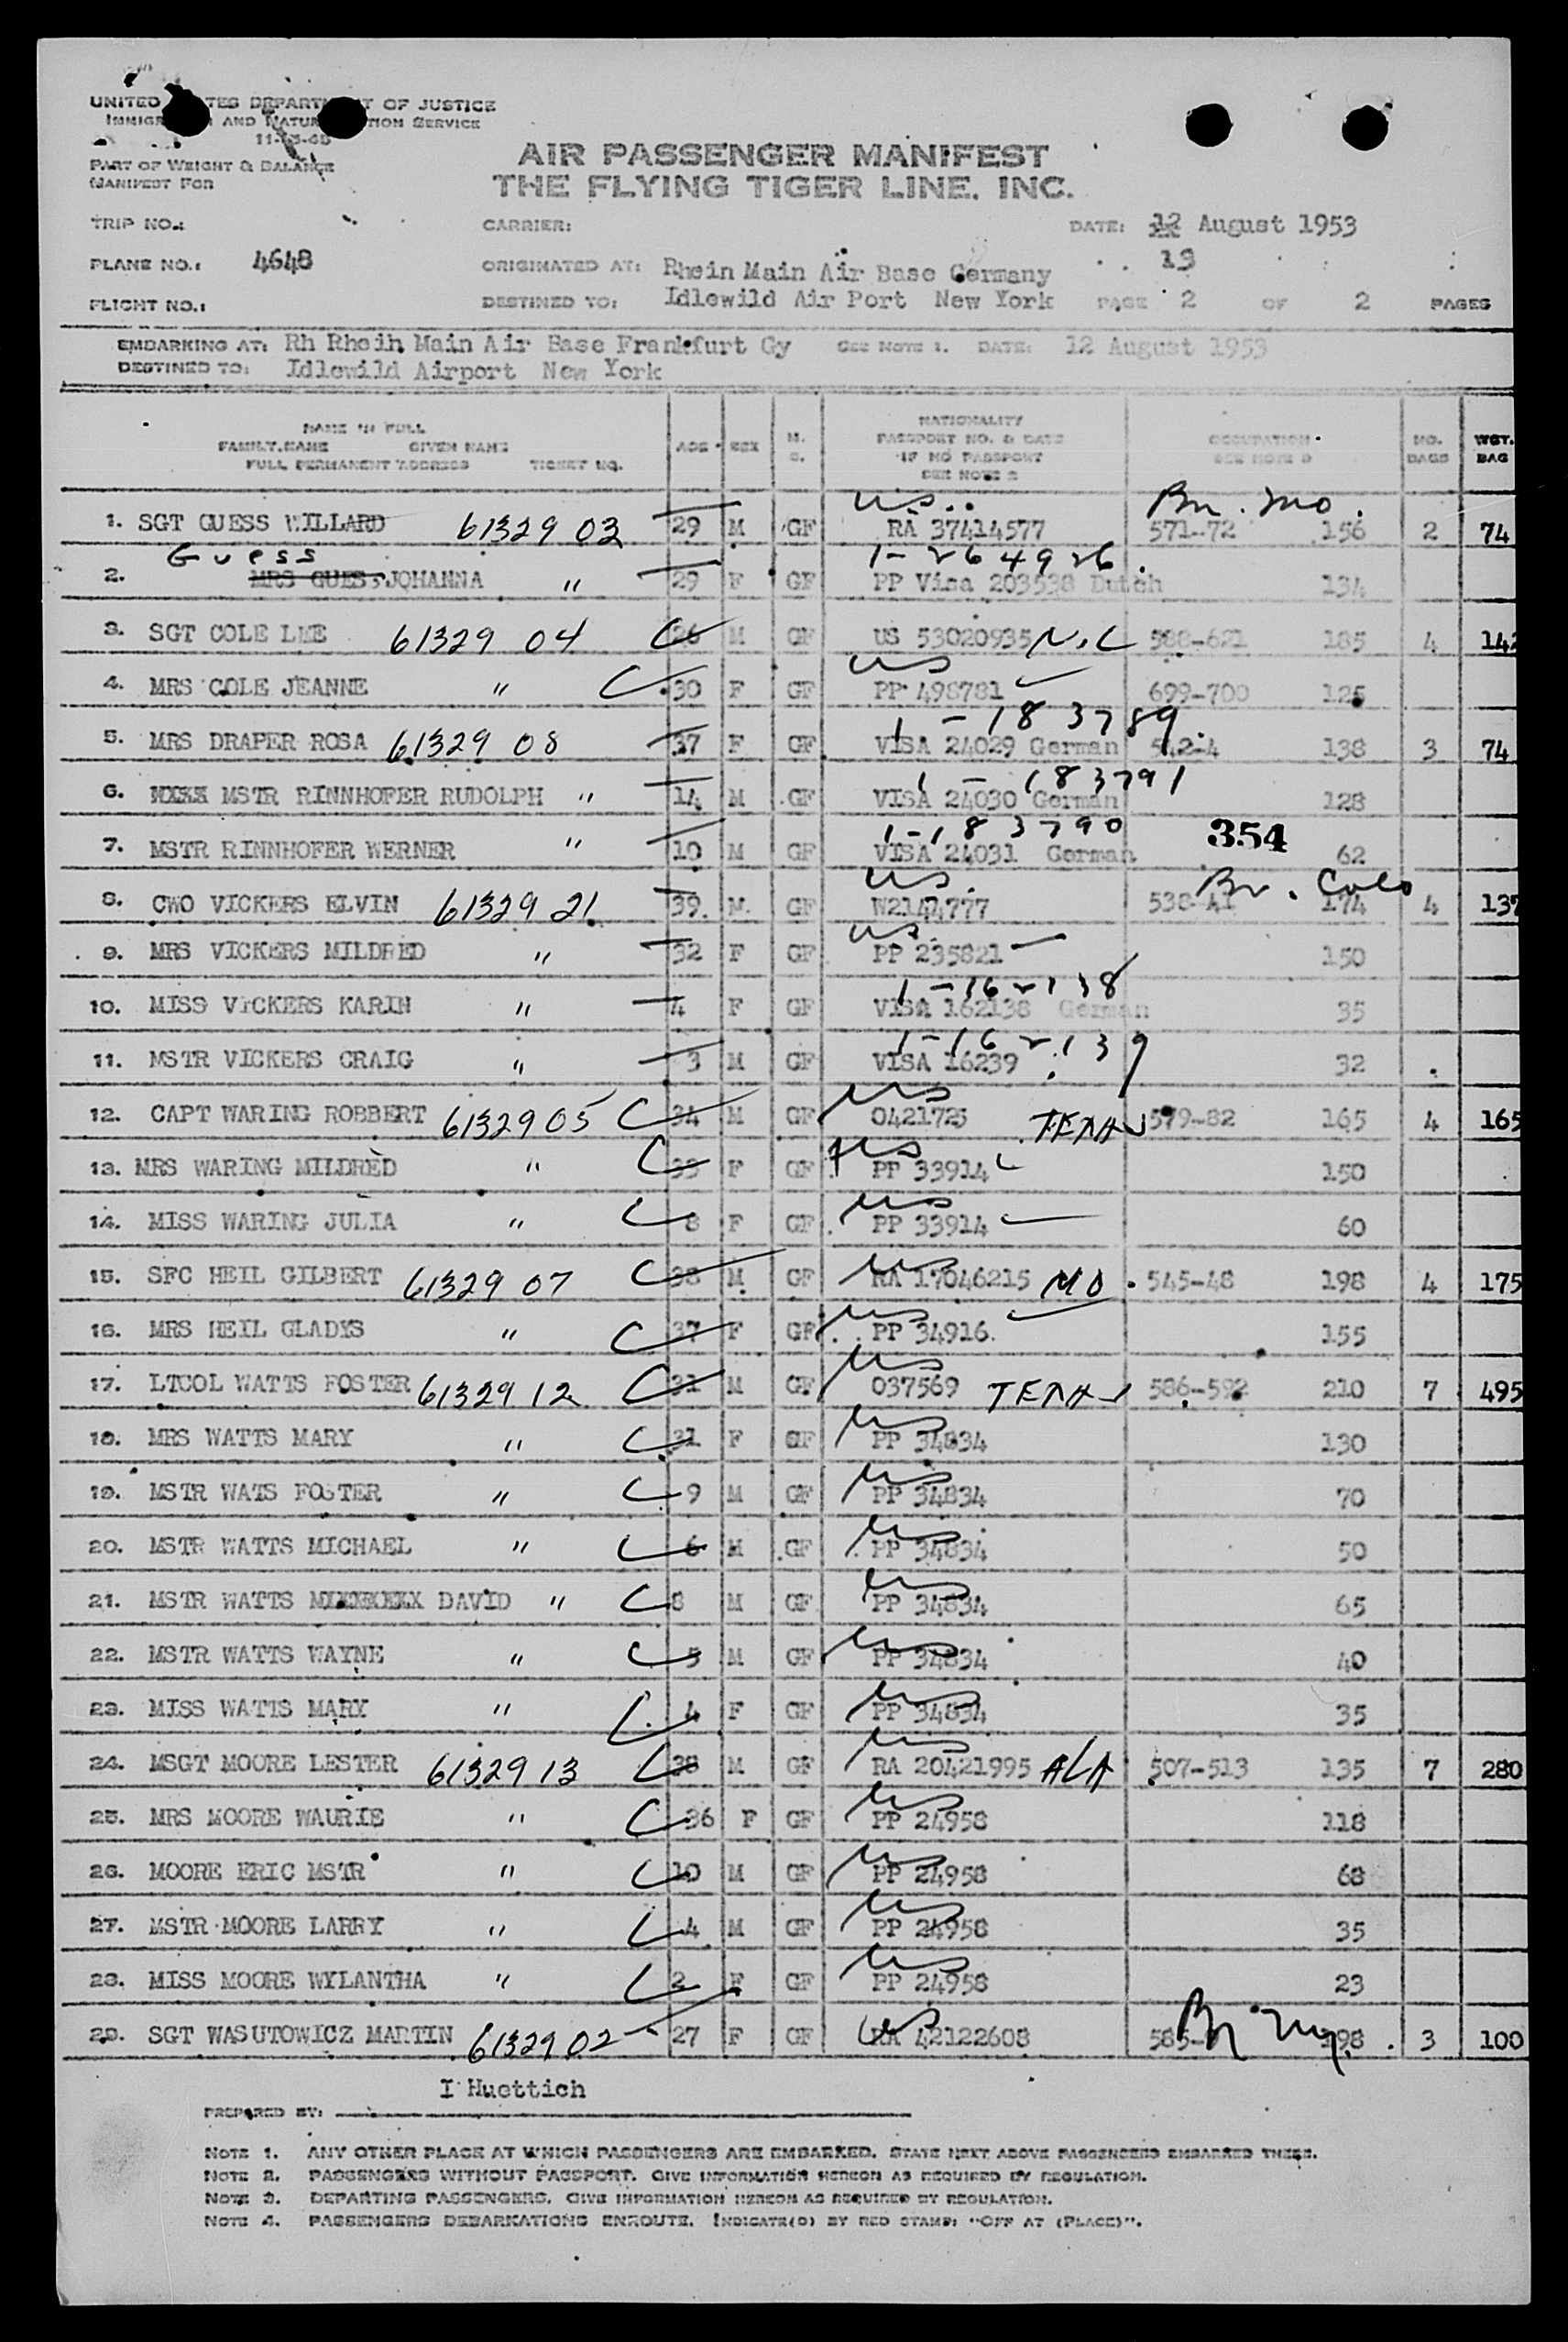 UNITED STATES DEPARTMENT OF JUSTICE
IMMIGRATION AND NATURALIZATION SERVICE
PART OF WEIGHT & BALANCE
MANIFEST FOR
AIR PASSENGER MANIFEST
THE FLYING TIGER LINE, INC.
TRIP NO.: CARRIER: DATE: 12 August 1953
PLANE NO.: 4648 ORIGINATED AT: Rhein Main Air Base Germany 13
FLIGHT NO.: DESTINED TO: Idlewild Air Port New York PAGE 2 OF 2 PAGES
EMBARKING AT: Rh Rhein Main Air Base Frankfurt Gy SEE NOTE 1. DATE: 12 August 1953
DESTINED TO: Idlewild Airport New York
NAME IN FULL
FAMILY NAME GIVEN NAME
FULL PERMANENT ADDRESS TICKET NO.
AGE SEX M. S.
NATIONALITY
PASSPORT NO. & DATE
IF NO PASSPORT
SEE NOTE 2
OCCUPATION
SEE NOTE 3
NO. BAGS
WGT. BAG
US Bn. Mo.
1. SGT GUESS WILLARD 61329 03 29 M GF RA 37414577 571-72 156 2 74
Guess 1-264926
2. MRS GUESS JOHANNA " 29 F GF PP Visa 203538 Dutch 134
3. SGT COLE LEE 61329 04 26 M GF US 53020935 N.C 588-621 185 4 142
US
4. MRS COLE JEANNE " 30 F GF PP 498781 699-700 125
1-183789
5. MRS DRAPER ROSA 61329 08 37 F GF VISA 24029 German 542-4 138 3 74
1-183791
6. MSTR RINNHOFER RUDOLPH " 14 M GF VISA 24030 German 128
1-183790
7. MSTR RINNHOFER WERNER " 10 M GF VISA 24031 German 354 62
US. Bn. Colo
8. CWO VICKERS ELVIN 61329 21 39 M GF W2144777 538-41 174 4 137
US
9. MRS VICKERS MILDRED " 32 F GF PP 235821 150
1-162138
10. MISS VICKERS KARIN " 4 F GF VISA 162138 German 35
1-162139
11. MSTR VICKERS CRAIG " 3 M GF VISA 16239 32
US
12. CAPT WARING ROBBERT 61329 05 34 M GF 0421725 579-82 165 4 165
US
13. MRS WARING MILDRED " 33 F GF PP 33914 150
US
14. MISS WARING JULIA " 8 F GF PP 33914 60
US
15. SFC HEIL GILBERT 61329 07 38 M GF RA 17046215 MO. 545-48 198 4 175
US
16. MRS HEIL GLADYS " 37 F GF PP 34916 155
US
17. LTCOL WATTS FOSTER 61329 12 31 M GF 037569 586-592 210 7 495
US
18. MRS WATTS MARY " 31 F GF PP 34834 130
US
19. MSTR WATS FOSTER " 9 M GF PP 34834 70
US
20. MSTR WATTS MICHAEL " 6 M GF PP 34834 50
US
21. MSTR WATTS DAVID " 8 M GF PP 34834 65
US
22. MSTR WATTS WAYNE " 5 M GF PP 34834 40
US
23. MISS WATTS MARY " 4 F GF PP 34834 35
US
24. MSGT MOORE LESTER 61329 13 38 M GF RA 20421995 ALA 507-513 135 7 280
US
25. MRS MOORE WAURIE " 36 F GF PP 24958 118
US
26. MOORE ERIC MSTR " 10 M GF PP 24958 68
US
27. MSTR MOORE LARRY " 4 M GF PP 24958 35
US
28. MISS MOORE WYLANTHA " 2 F GF PP 24958 23
US
29. SGT WASUTOWICZ MARTIN 61329 02 27 F GF RA 42122608 198 3 100
I Huettich
PREPARED BY:
NOTE 1. ANY OTHER PLACE AT WHICH PASSENGERS ARE EMBARKED. STATE NEXT ABOVE PASSENGERS EMBARKED THERE.
NOTE 2. PASSENGERS WITHOUT PASSPORT. GIVE INFORMATION HEREON AS REQUIRED BY REGULATION.
NOTE 3. DEPARTING PASSENGERS. GIVE INFORMATION HEREON AS REQUIRED BY REGULATION.
NOTE 4. PASSENGERS DEBARKATIONS ENROUTE. INDICATE(D) BY RED STAMP: "OFF AT (PLACE)".